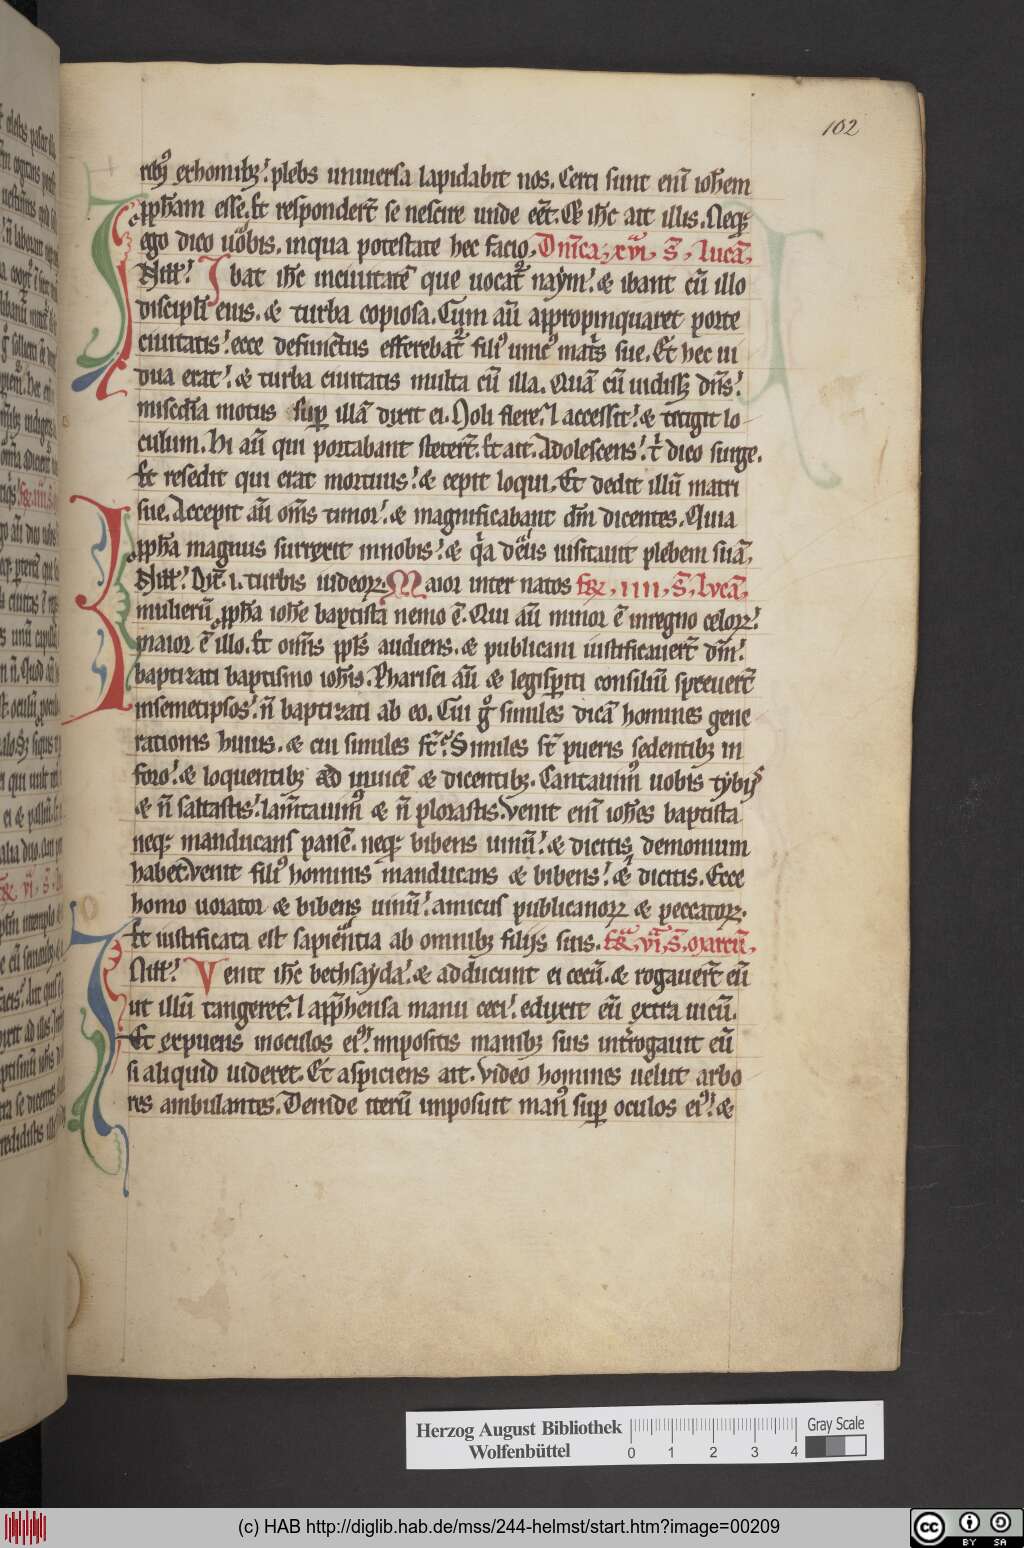 102
rib9 exhominibꝫ. plebs uniuersa lapidabit nos. Certi sunt enī ioh̄em
ꝓph̄am esse. Et responderūt se nescire unde eēt. Et ih̄c ait illis. Neqꝫ
ego dico uobis, inqua potestate hec facio. Dn̄ica. xvi. s̄. lucā.
In ill'. Ibat ih̄c inciuitatē que uocat᷑ naym. & ibant cū illo
discipl'i eius. & turba copiosa. Cum aū appropinquaret porte
ciuitatis. ecce defunctus efferebat᷑ fili9 unic9 mat̄s sue. Et hec ui
dua erat. & turba ciuitatis multa cū illa. Quā cū uidissꝫ dn̄s.
misc̄dia motus sup̱ illā dixit ei. Noli flere. & accessit. & tetigit lo
culum. Hi aū qui portabant steterūt. Et ait. Adolescens. t' dico surge.
Et resedit qui erat mortuus. & cepit loqui. Et dedit illū matri
sue. Accepit aū om̄s timor. & magnificabant dm̄ dicentes. Quia
ꝓph̄a magnus surrexit innobis. & q'a deus uisitauit plebem suā.
In ill'. Dix̄. i. turbis iudeoꝝ. Maior inter natos fr̄. iiii. s̄. lvcā.
mulierū ꝓph̄a ioh̄e baptista nemo ē. Qui aū minor ē inregno celoꝝ.
maior ē illo. Et om̄is ppl's audiens. & publicani iustificauerūt dm̄.
baptizati baptismo ioh̄is. Pharisei aū & legisp̱iti consiliū spreuerūt
insemetipsos. n̄ baptizati ab eo. Cui g̊ similes dicā homines gene
rationis huius. & cui similes st̄. Similes st̄ pueris sedentibꝫ in
foro. & loquentibꝫ ad inuicē & dicentibꝫ. Cantauim9 uobis tybiis
& n̄ saltastis. lam̄tauim9 & n̄ plorastis. Venit enī ioh̄es baptista
neqꝫ manducans panē. neqꝫ bibens uinū. & dicitis demonium
habet. Venit fili9 hominis manducans & bibens. & dicitis. Ecce
homo uorator & bibens uinū. amicus publicanoꝝ & peccatoꝝ.
Et iustificata est sapientia ab omnibꝫ filijs suis. fr̄. vi. s̄. marcū.
In ill'. Venit ih̄c bethsayda. & adducunt ei cecū. & rogauert̄ eū
ut illū tangeret. & app̄hensa manu ceci. eduxit eū extra uicū.
Et expuens inoculos ei9. impositis manibꝫ suis int̄rogauit eū
si aliquid uideret. Et aspiciens ait. Video homines uelut arbo
res ambulantes. Deinde iterū imposuit man9 sup̱ oculos ei9. &
Herzog August Bibliothek
Wolfenbüttel
0 1 2 3 4
Gray Scale
(c) HAB http://diglib.hab.de/mss/244-helmst/start.htm?image=00209
cc BY SA